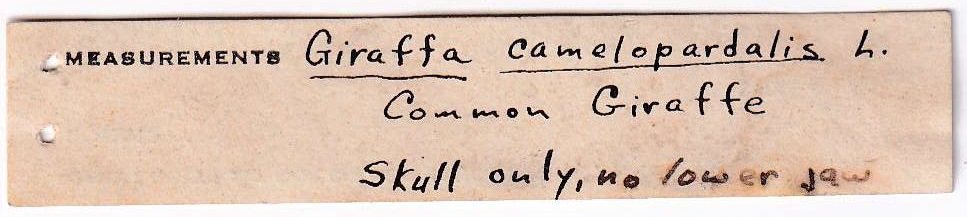 MEASUREMENTS Giraffa camelopardalis L.
Common Giraffe
Skull only, no lower jaw